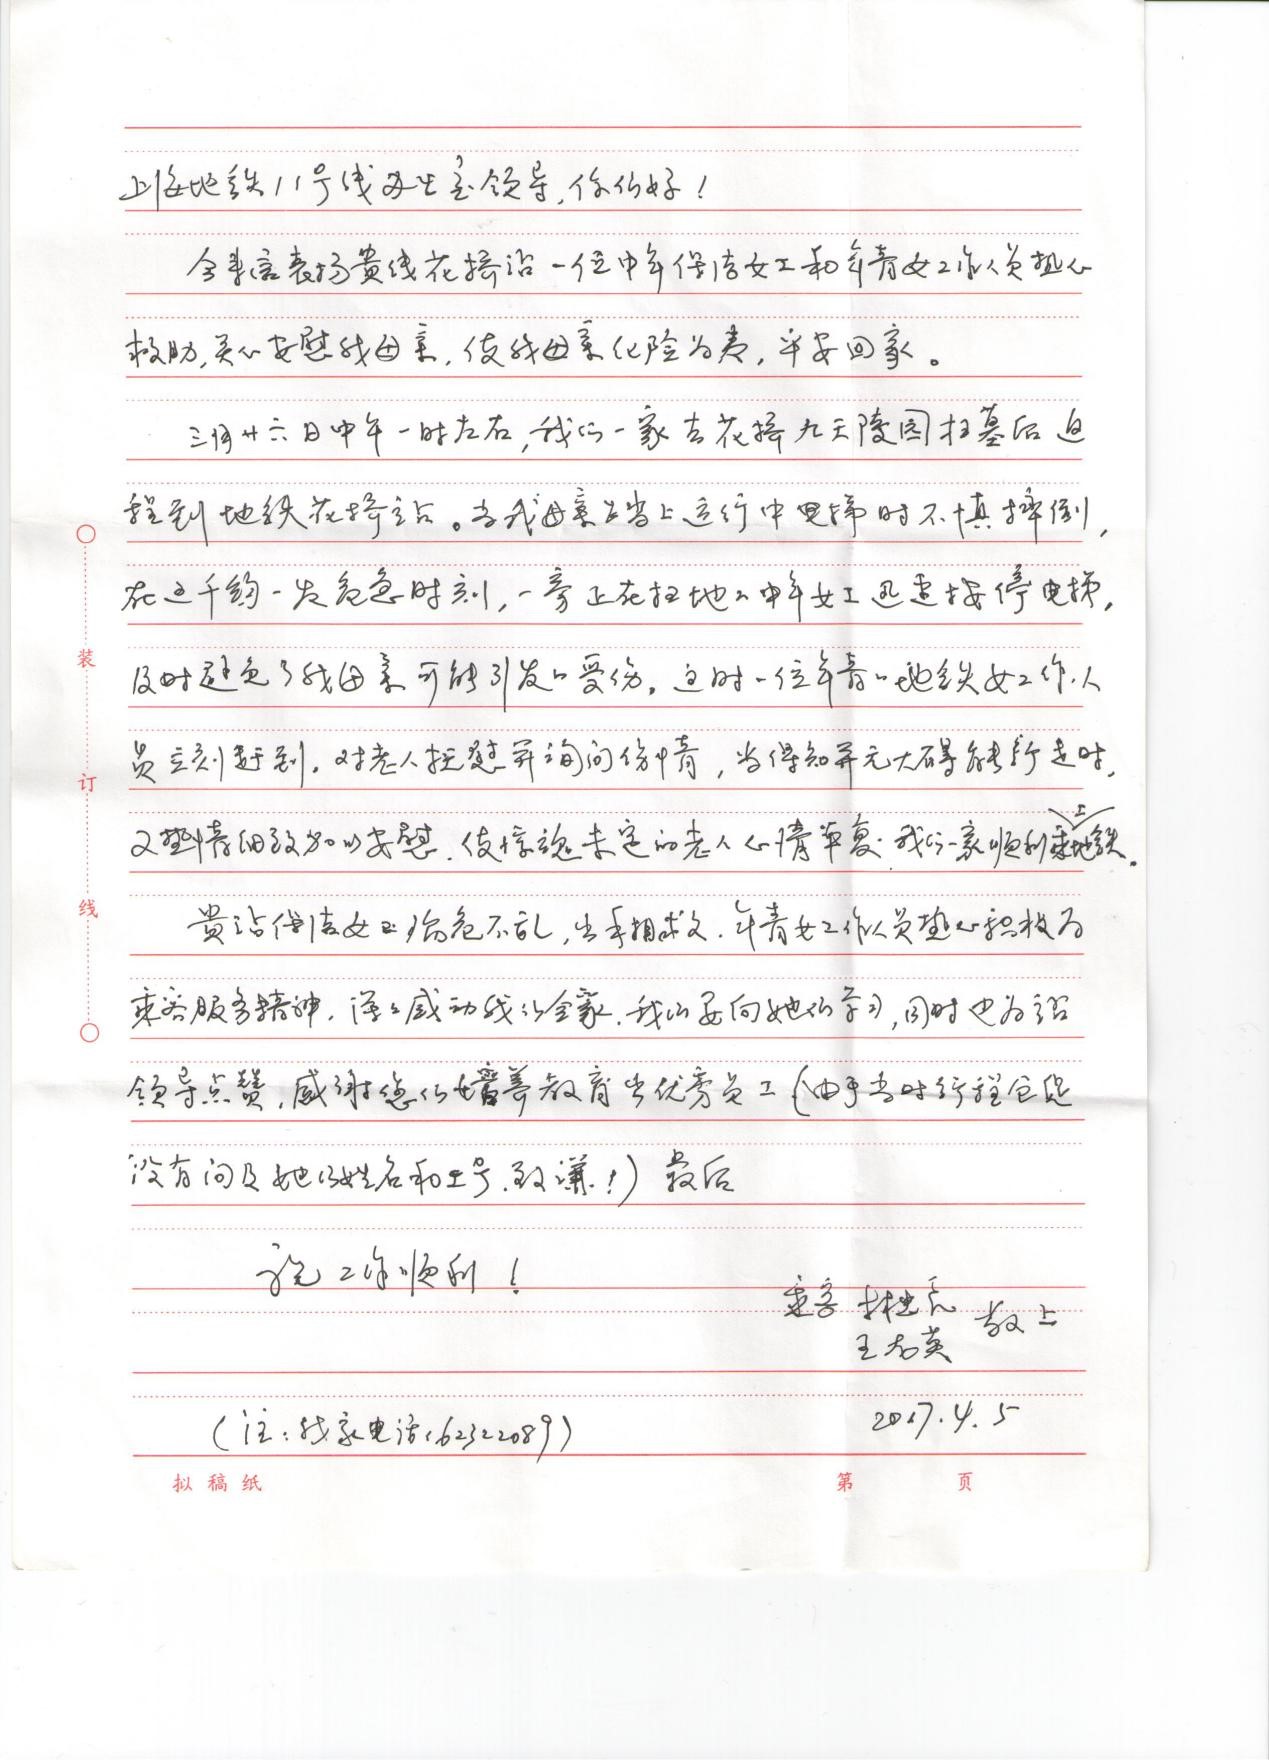 上海地铁11号线办公室领导,你们好!
今来信表扬贵线花桥站一位中年保洁女工和年青女工作人员热心
救助,关心安慰我母亲,使我母亲化险为夷,平安回家。
三月廿六日中午一时左右,我们一家去花桥九天陵园扫墓后返
程到地铁花桥站。当我母亲踏上运行中电梯时不慎摔倒,
在这千钧一发危急时刻,一旁正在扫地的中年女工迅速按停电梯,
及时避免了我母亲可能引发的受伤。这时一位年青的地铁女工作人
员立刻赶到,对老人抚慰并询问伤情,当得知并无大碍能行走时,
又热情细致加以安慰,使惊魂未定的老人心情平复.我们一家顺利乘上地铁。
贵站保洁女工临危不乱,出手相救,年青女工作人员热心积极为
乘客服务精神,深深感动我们全家,我们要向她们学习,同时也为站
领导点赞,感谢您们培养教育出优秀员工(由于当时行程仓促
没有问及她们姓名和工号,致谦!)最后
祝工作顺利!
乘客
王志英 敬上
2017.4.5
(注:我家电话:62322089)
装
订
线
拟稿纸 第 页